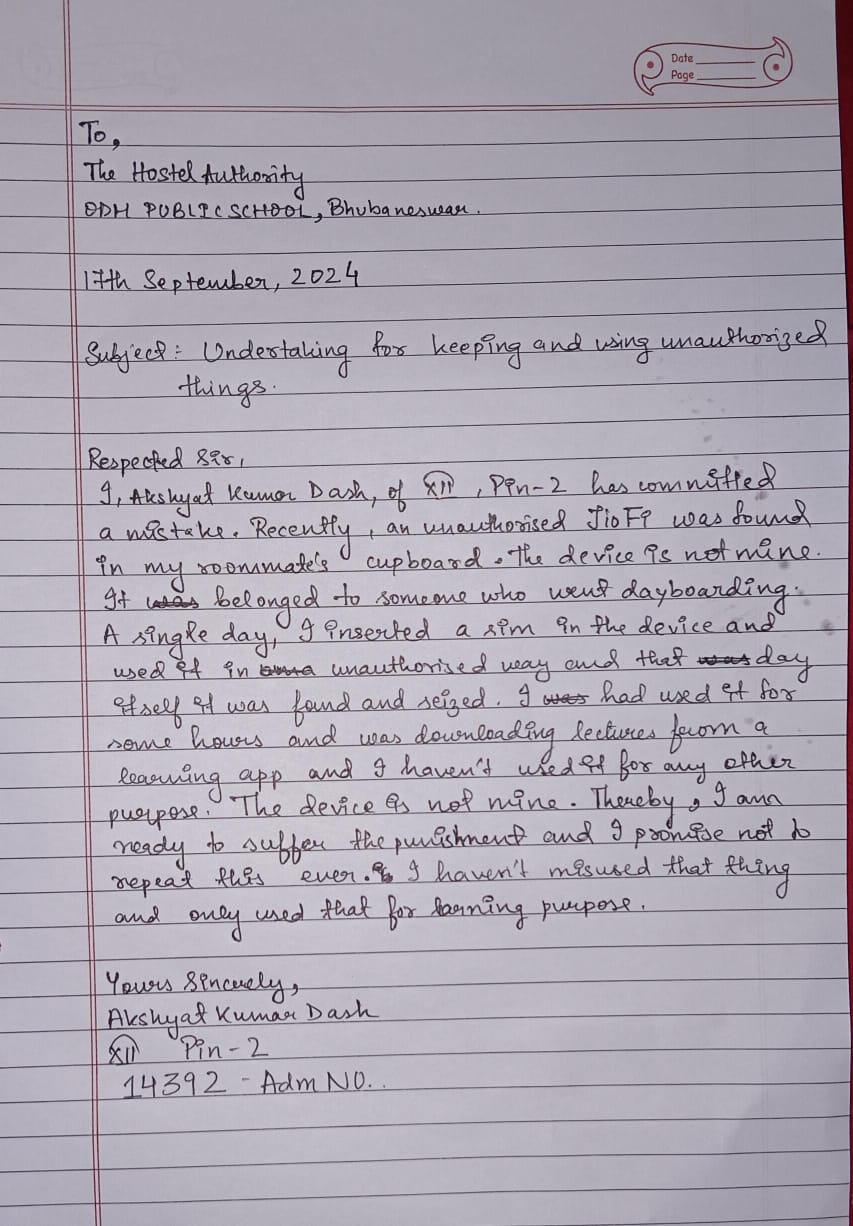 Date
Page
To,
The Hostel Authority
ODM PUBLIC SCHOOL, Bhubaneswar.
17th September, 2024
Subject: Undertaking for keeping and using unauthorized
things.
Respected Sir,
I, Akshyat Kumar Dash, of XII, Pin-2 has committed
a mistake. Recently, an unauthorised JioFi was found
in my roommate's cupboard. The device is not mine.
It belonged to someone who went dayboarding.
A single day, I inserted a sim in the device and
used it in unauthorised way and that day
itself it was found and seized. I had used it for
some hours and was downloading lectures from a
learning app and I haven't used it for any other
purpose. The device is not mine. Thereby, I am
ready to suffer the punishment and I promise not to
repeat this ever. I haven't misused that thing
and only used that for larning purpose.
Yours Sincerely,
Akshyat Kumar Dash
XII Pin-2
14392 - Adm NO..